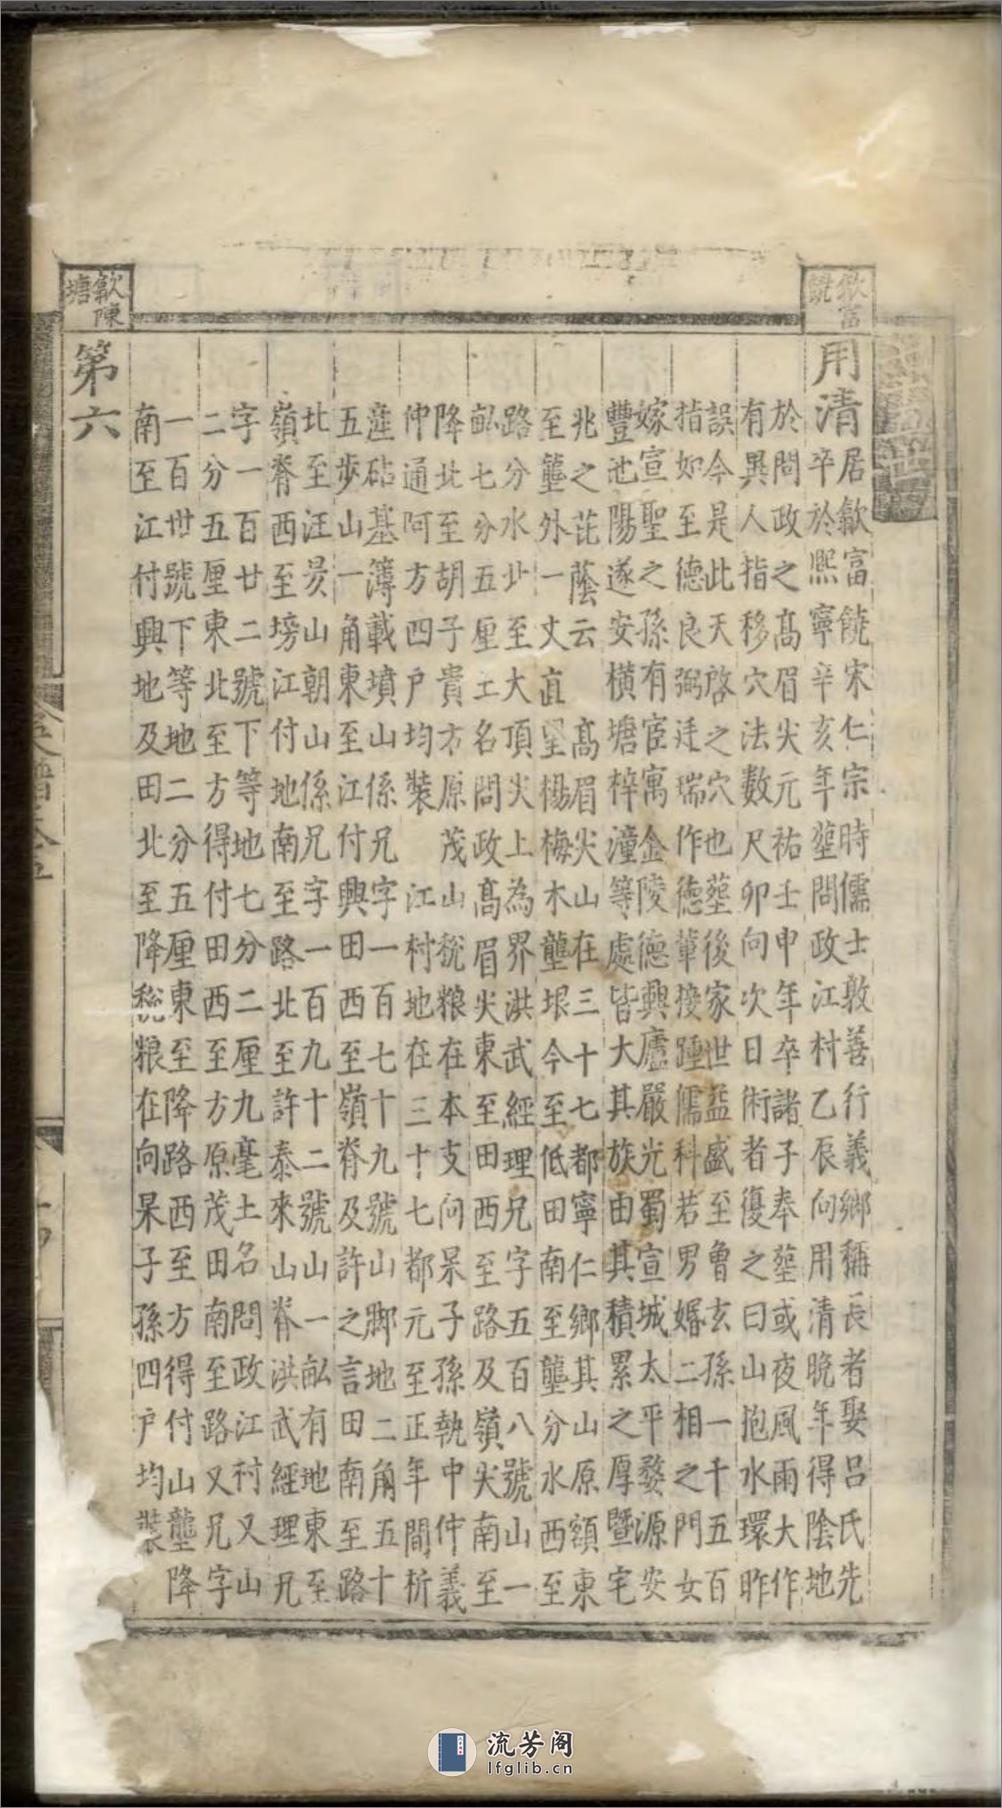 歙富饒
用清
居歙富饒宋仁宗時儒士敦善行義鄉稱長者娶呂氏先
卒於熙寧辛亥年塟問政江村乙辰向用清晚年得陰地
於問政之高眉尖元祐壬申年卒諸子奉塟或夜風雨大作
有異人指移穴法數尺卯向次日術者復之曰山抱水環昨
誤今是此天啓之穴也塟後家世益盛至曾玄孫一千五百
指如至德良弼廷瑞作德軰接踵儒科若男婚二相之門女
嫁宣聖之孫有宦寓金陵德興廬嚴光蜀宣城太平婺源安
豐池陽遂安橫塘梓潼等處皆大其族由其積累之厚暨宅
兆之芘蔭云 高眉尖山在三十七都寧仁鄉其山原額東
至壟外一丈直望楊梅木壟垠今至低田南至壟分水西至
路分水北至大頂尖上為界洪武經理兄字五百八號山一
畝七分五厘土名問政高眉尖東至田西至路及嶺尖南至
降北至胡子貴方原茂山稅粮在本支向杲子孫執中仲義
仲通阿方四户均裝 江村地在三十七都元至正年間析
遳砧基簿載墳山係兄字一百七十九號山脚地二角五十
五步山一角東至江付興田西至嶺脊及許之言田南至路
北至汪炅山朝山係兄字一百九十二號山一畝有地東至
嶺脊西至塝江付地南至路北至許泰來山脊洪武經理兄
字一百廿二號下等地七分二厘九毫土名問政江村又山
二分五厘東北至方得付田西至方原茂田南至路又兄字
一百世號下等地二分五厘東至降路西至方得付山壟降
南至江付興地及田北至降稅粮在向杲子孫四户均裝
歙陳塘
第六
流芳阁
lfglib.cn